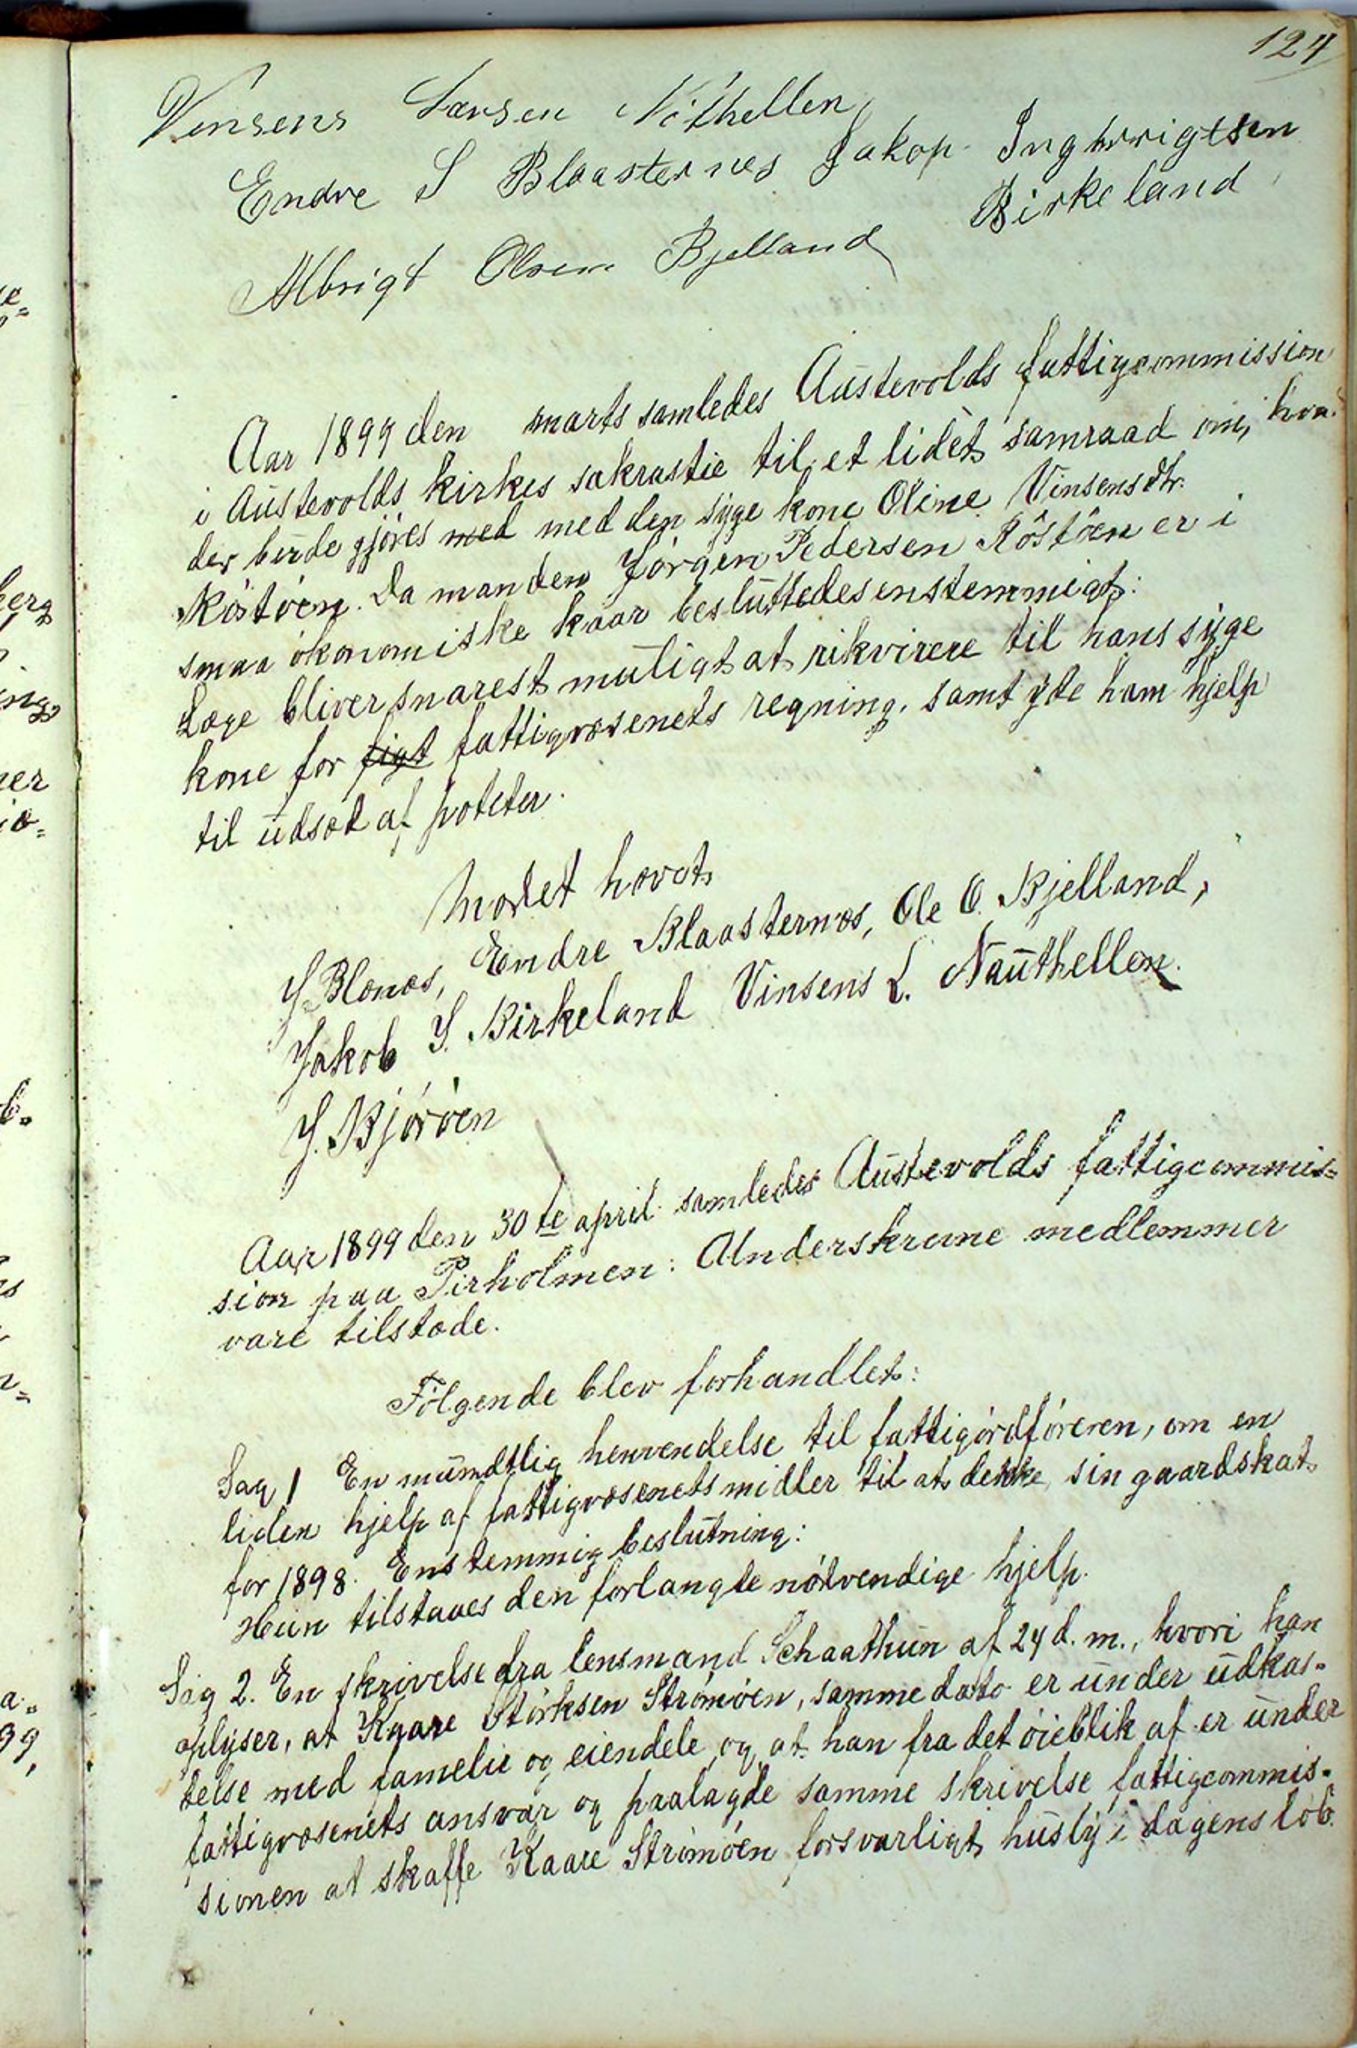 124
Vinsens Larsen Nöthellen
Endre S Blaasternes Jakop Ingbrrigtsen
Birkeland
Albrigt Olsen Bjelland
Aar 1899 den marts samledes Austevolds fattigcommission
i Austevolds kirkes sakrastie til et lidet samraad om, hva.
der burde gjöres med med den syge kone Oline Vinsensdtr.
Röstöen. Da manden Jörgen Pedersen Röstöen er i
smaa ökonomiske kaar besluttedes enstemmigt:
Læge bliver snarest muligt at rikvirere til hans syge
kone for figt fattigvæsenets regning, samt yde ham hjelp
til udsæd af poteter.
Mödet hævet
J. Blænes, Endre Blaasternæs, Ole O. Bjelland,
Jakob I. Birkeland Vinsens L. Nauthellen.
J. Björöen
Aar 1899 den 30te april samledes Austevolds fattigcommis=
sion paa Pirholmen: Underskrevne medlemmer
vare tilstæde.
Fölgende blev forhandlet:
Sag 1 En mundtlig henvendelse til fattigördföreren, om en
liden hjelp af fattigvæsenets midler til at dekke sin gaardskat
for 1898. Enstemmig beslutning:
Hun tilstaaes den forlangte nödvendige hjelp.
Sag 2. En skrivelse fra lensmand Schaathun af 24 d. m., hvori han
oplyser, at Kaare Störksen Strömöen, samme dato er under udkas-
telse med famelie og eiendele og at han fra det öieblik af er under
fattigvæsenets ansvar og paalagde samme skrivelse fattigcommis-
sionen at skaffe Kaare Strömöen forsvarligt husly i dagens löb.